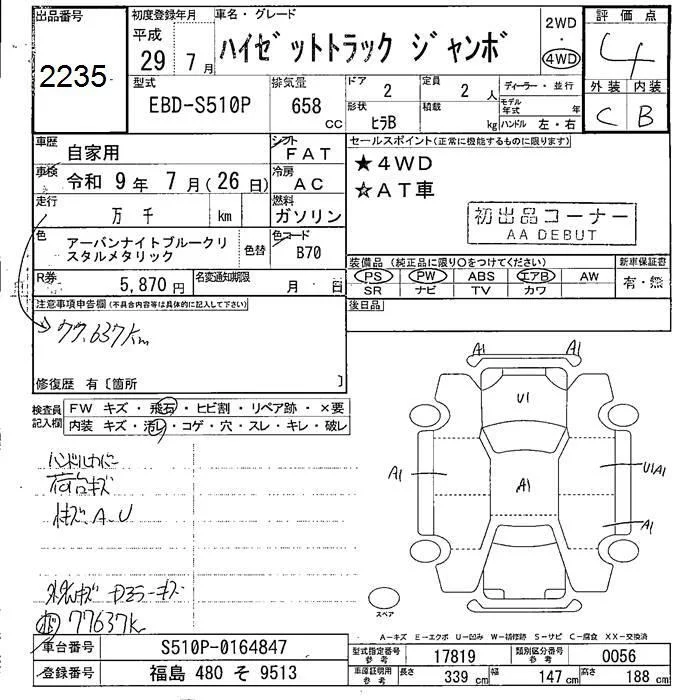 出品番号
2235
初度登録年月
平成
29 7月
車名・グレード
ハイゼットトラック ジャンボ
2WD
・
4WD
評価点
4
外装 内装
C B
型式
EBD-S510P
排気量
658
CC
ドア
2
定員
2 人
形状
ヒラB
積載
kg
ディーラー・並行
モデル年式 年
ハンドル 左・右
車歴
自家用
シフト
FAT
セールスポイント(正常に機能するものに限ります)
★4WD
☆AT車
初出品コーナー
AA DEBUT
車検
令和 9年 7月(26日)
冷房
AC
走行
万 千 km
燃料
ガソリン
色
アーバンナイトブルークリスタルメタリック
色替
色コード
B70
装備品(純正品に限り○をつけてください)
PS PW ABS エアB AW
SR ナビ TV カワ
新車保証書
有・無
R券
5,870円
名変通知期限
月 日
後日品
注意事項申告欄(不具合内容等は具体的に記入して下さい)
77.637km
修復歴 有〔箇所 〕
検査員記入欄
FW キズ・飛石・ヒビ割・リペア跡・×要
内装 キズ・汚レ・コゲ・穴・スレ・キレ・破レ
ハンドルカバー
荷台キズ
キズ.A.U
77637K
A1 A1
U1
A1
A1
U1A1
A1
スペア
A-キズ E-エクボ U-凹み W-補修跡 S-サビ C-腐食 XX-交換済
車台番号
S510P-0164847
型式指定番号
参考
17819
類別区分番号
参考
0056
登録番号
福島 480 そ 9513
車庫証明用
参考
長さ
339 cm
幅
147 cm
高さ
188 cm